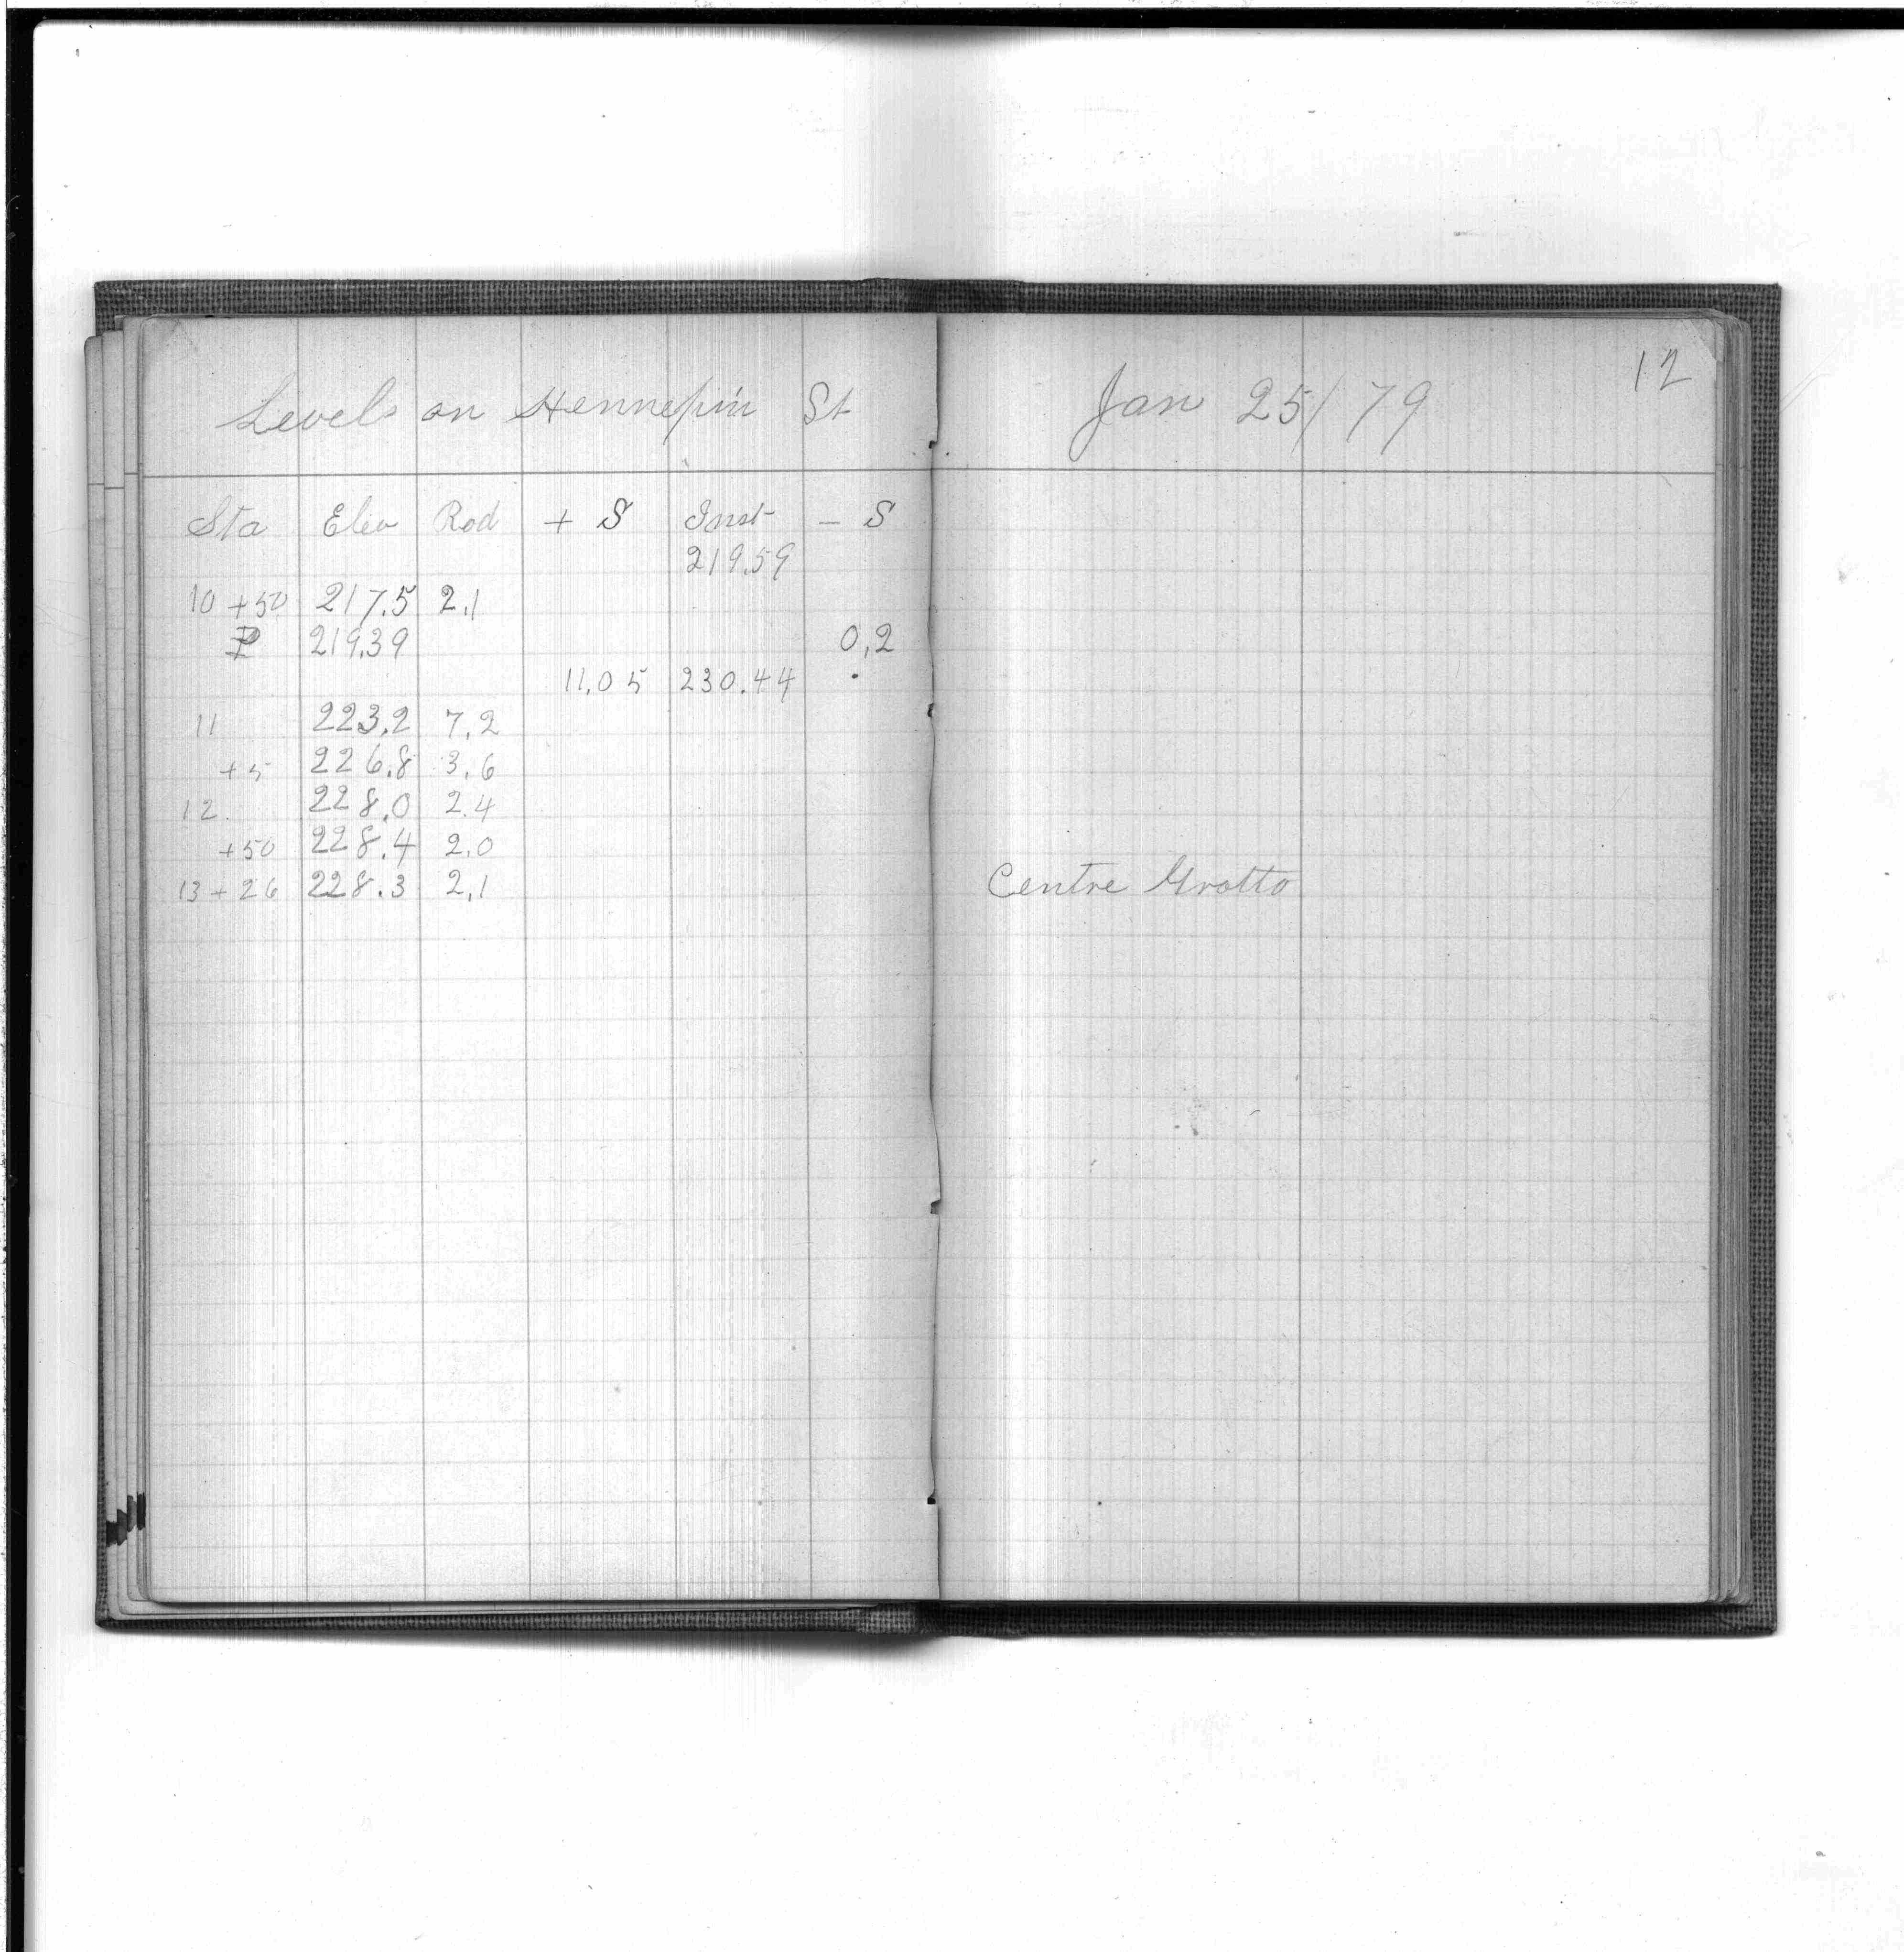 Levels on Hennepin St
Sta Elev Rod + S Inst - S
219.59
10 +50 217.5 2.1
P 219.39 0.2
11.05 230.44
11 223.2 7.2
+5 226.8 3.6
12. 228.0 2.4
+50 228.4 2.0
13 + 26 228.3 2.1
Jan 25/79
12
Centre Grotto